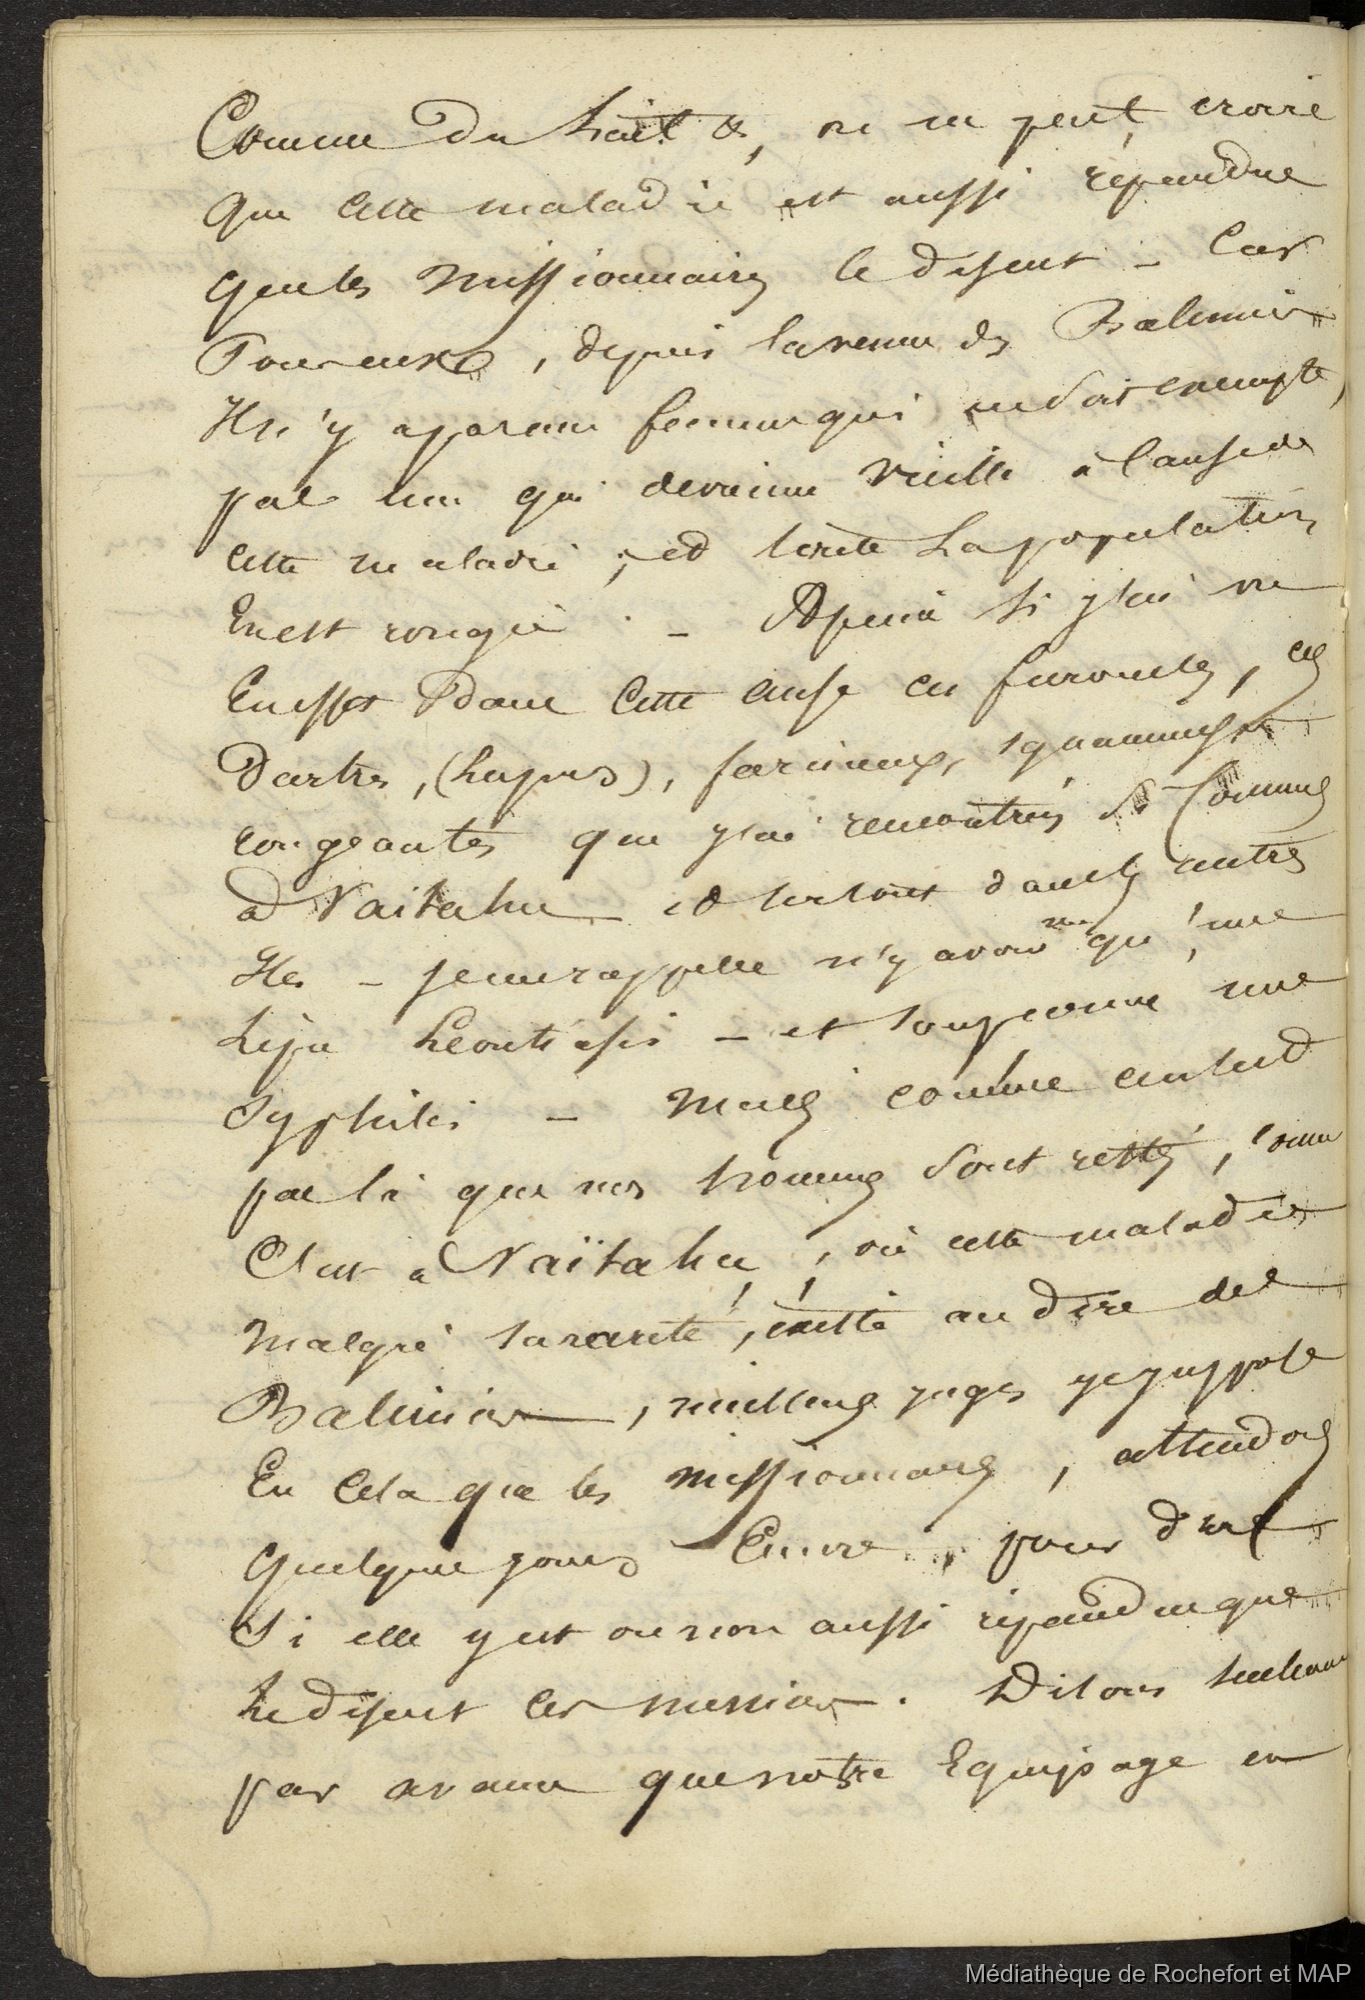 Comme du lait &, on ne peut croire
que cette maladie est aussi répandue
que les missionnaires le disent – Car
Pour eux, depuis la venue des Baleiniers
Il n'y a pas une femme qui en soit exempte,
pas une qui devienne vieille à cause de
cette maladie ; et toute la population
En est rongée. – A peine si j'ai vu
En effet dans cette anse ces furoncles, ces
Dartres, (Lupus), farineux, squammeuses
rongeantes que j'ai rencontrés si communes
à Vaitahu et surtout dans les autres
Iles – je me rappelle n'y avoir vu qu'une
Lèpre Leontiasis – et soupçonne une
syphilis – Mais comme ce n'est
pas là que nos hommes sont restés, comme
C'est à Vaïtahu, où cette maladie
malgré sa rareté, existe au dire des
Baleiniers, meilleurs juges je suppose
En Cela que les missionnaires, attendons
quelques jours Encore pour dire
Si elle y est ou non aussi répandue que
Le disent ces messieurs. Disons seulement
par avance que notre Equipage en
Médiathèque de Rochefort et MAP